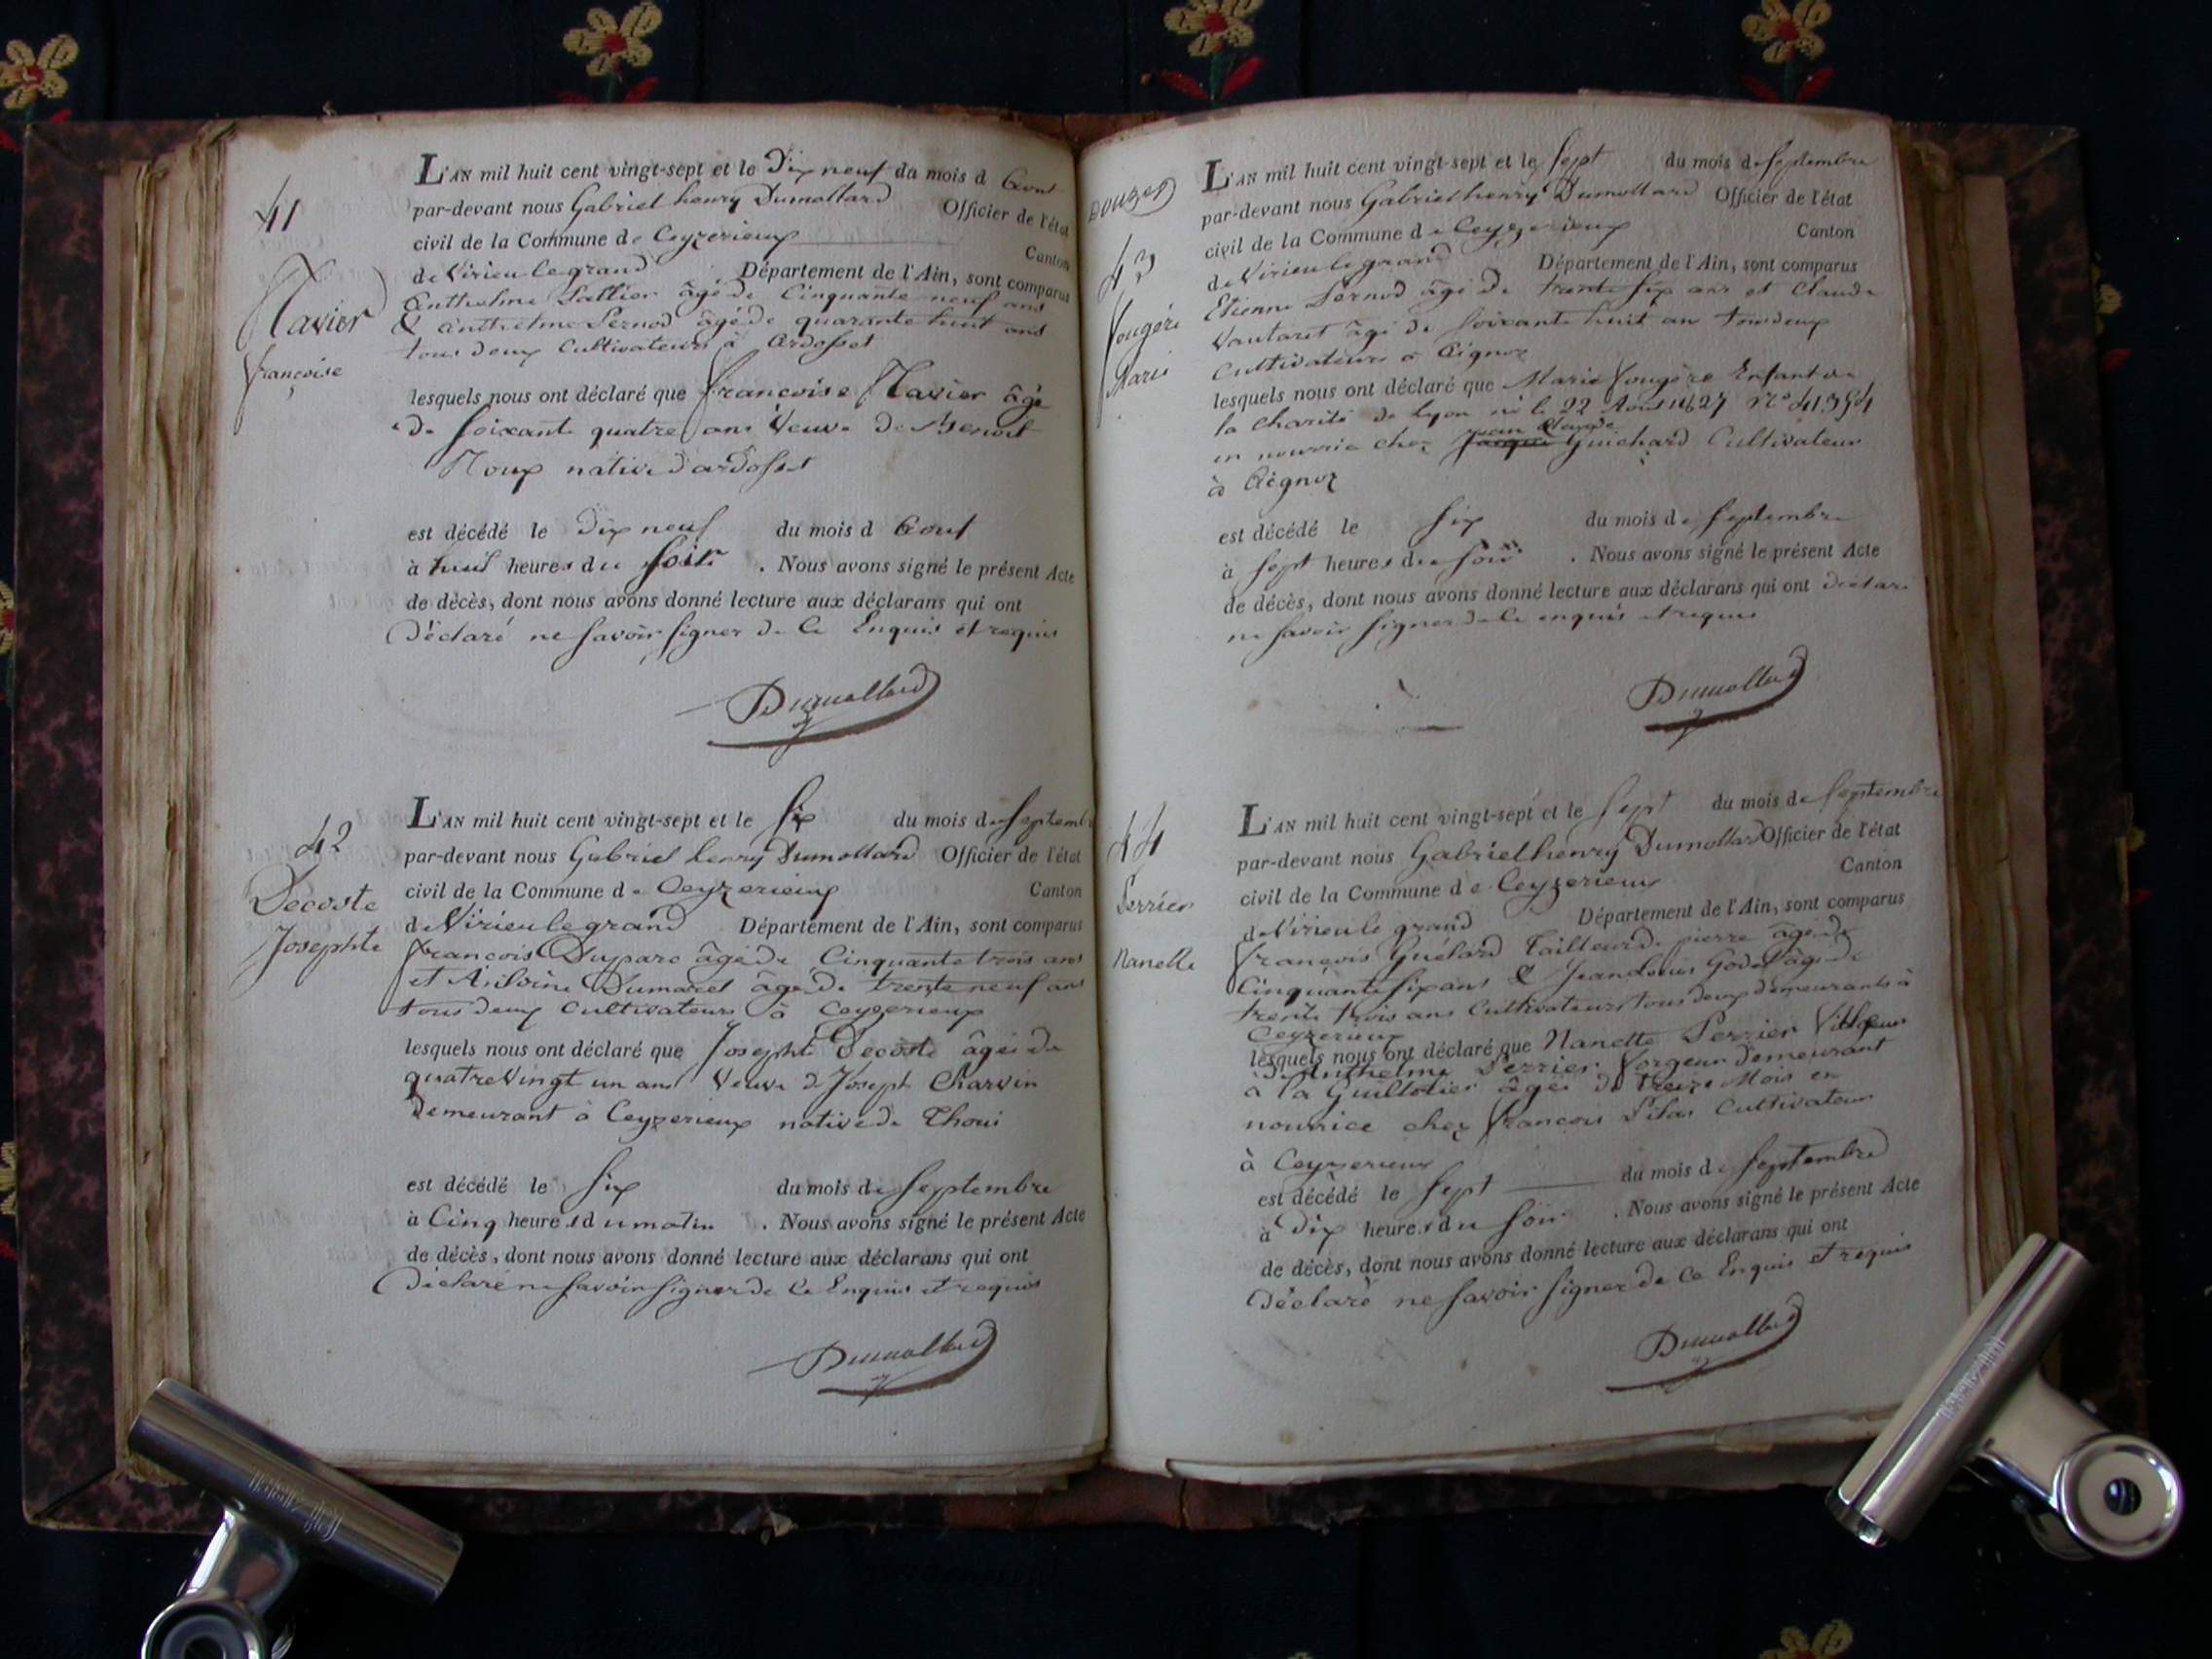 41
Françoise
L'AN mil huit cent vingt-sept et le Dix neuf du mois d Aout
par-devant nous Gabriel henry Dumollard Officier de l'état
civil de la Commune de Ceyzerieux Canton
de Virieu le grand Département de l'Ain, sont comparus
Anthelme âgé de Cinquante neuf ans
& anthelme Pernod âgé de quarante huit ans
tous deux Cultivateurs à Ardosset
lesquels nous ont déclaré que françoise âgé
de Soixante quatre ans Veuve de Benoit
Roux native d'ardosset
est décédé le Dix neuf du mois d Aout
à huit heures du Soir . Nous avons signé le présent Acte
de décès, dont nous avons donné lecture aux déclarans qui ont
Déclaré ne Savoir Signer de Ce Enquis et requis
Dumollard
42
Decoste
Josephte
L'AN mil huit cent vingt-sept et le Six du mois de Septemb
par-devant nous Gabriel henry Dumollard Officier de l'état
civil de la Commune de Ceyzerieux Canton
de Virieu le grand Département de l'Ain, sont comparus
françois Duparc âgé de Cinquante trois ans
et Antoine Dumarel âgé de trente neuf ans
tous deux Cultivateurs à Ceyzerieux
lesquels nous ont déclaré que Josephte Decoste âgée de
quatre Vingt un ans Veuve de Joseph Charvin
demeurant à Ceyzerieux native de Thoui
est décédé le Six du mois de Septembre
à Cinq heures du matin . Nous avons signé le présent Acte
de décès, dont nous avons donné lecture aux déclarans qui ont
Déclaré ne Savoir Signer de Ce Enquis et requis
Dumollard
43
Vougère
Marie
L'AN mil huit cent vingt-sept et le Sept du mois de Septembre
par-devant nous Gabriel henry Dumollard Officier de l'état
civil de la Commune de Ceyzerieux Canton
de Virieu le grand Département de l'Ain, sont comparus
Etienne Pernod âgé de trente Six ans et Claude
Vautaret âgé de Soixante huit ans tous deux
Cultivateurs à Aignoz
lesquels nous ont déclaré que Marie Vougère Enfant de
la Charité de Lyon né le 22 Aout 1827 N° 41354
jean Claude
en nourrice chez Jacque Guichard Cultivateur
à Aignoz
est décédé le Six du mois de Septembre
à Sept heures du Soir . Nous avons signé le présent Acte
de décès, dont nous avons donné lecture aux déclarans qui ont déclaré
ne Savoir Signer de Ce enquis et requis
Dumollard
44
Perrier
Nanette
L'AN mil huit cent vingt-sept et le Sept du mois de Septembre
par-devant nous Gabriel henry Dumollard Officier de l'état
civil de la Commune de Ceyzerieux Canton
de Virieu le grand Département de l'Ain, sont comparus
françois Guélard Tailleur de pierre âgé de
Cinquante Six ans & Jean Louis Godet âgé de
trente trois ans Cultivateur tous deux demeurants à
Ceyzerieux
lesquels nous ont déclaré que Nanette Perrier
d'Anthelme Perrier forgeur demeurant
à la Guillotier âgée de treize Mois en
nourrice chez françois Pilas Cultivateur
à Ceyzerieux
est décédé le Sept du mois de Septembre
à Dix heures du Soir . Nous avons signé le présent Acte
de décès, dont nous avons donné lecture aux déclarans qui ont
Déclaré ne Savoir Signer de Ce Enquis et requis
Dumollard